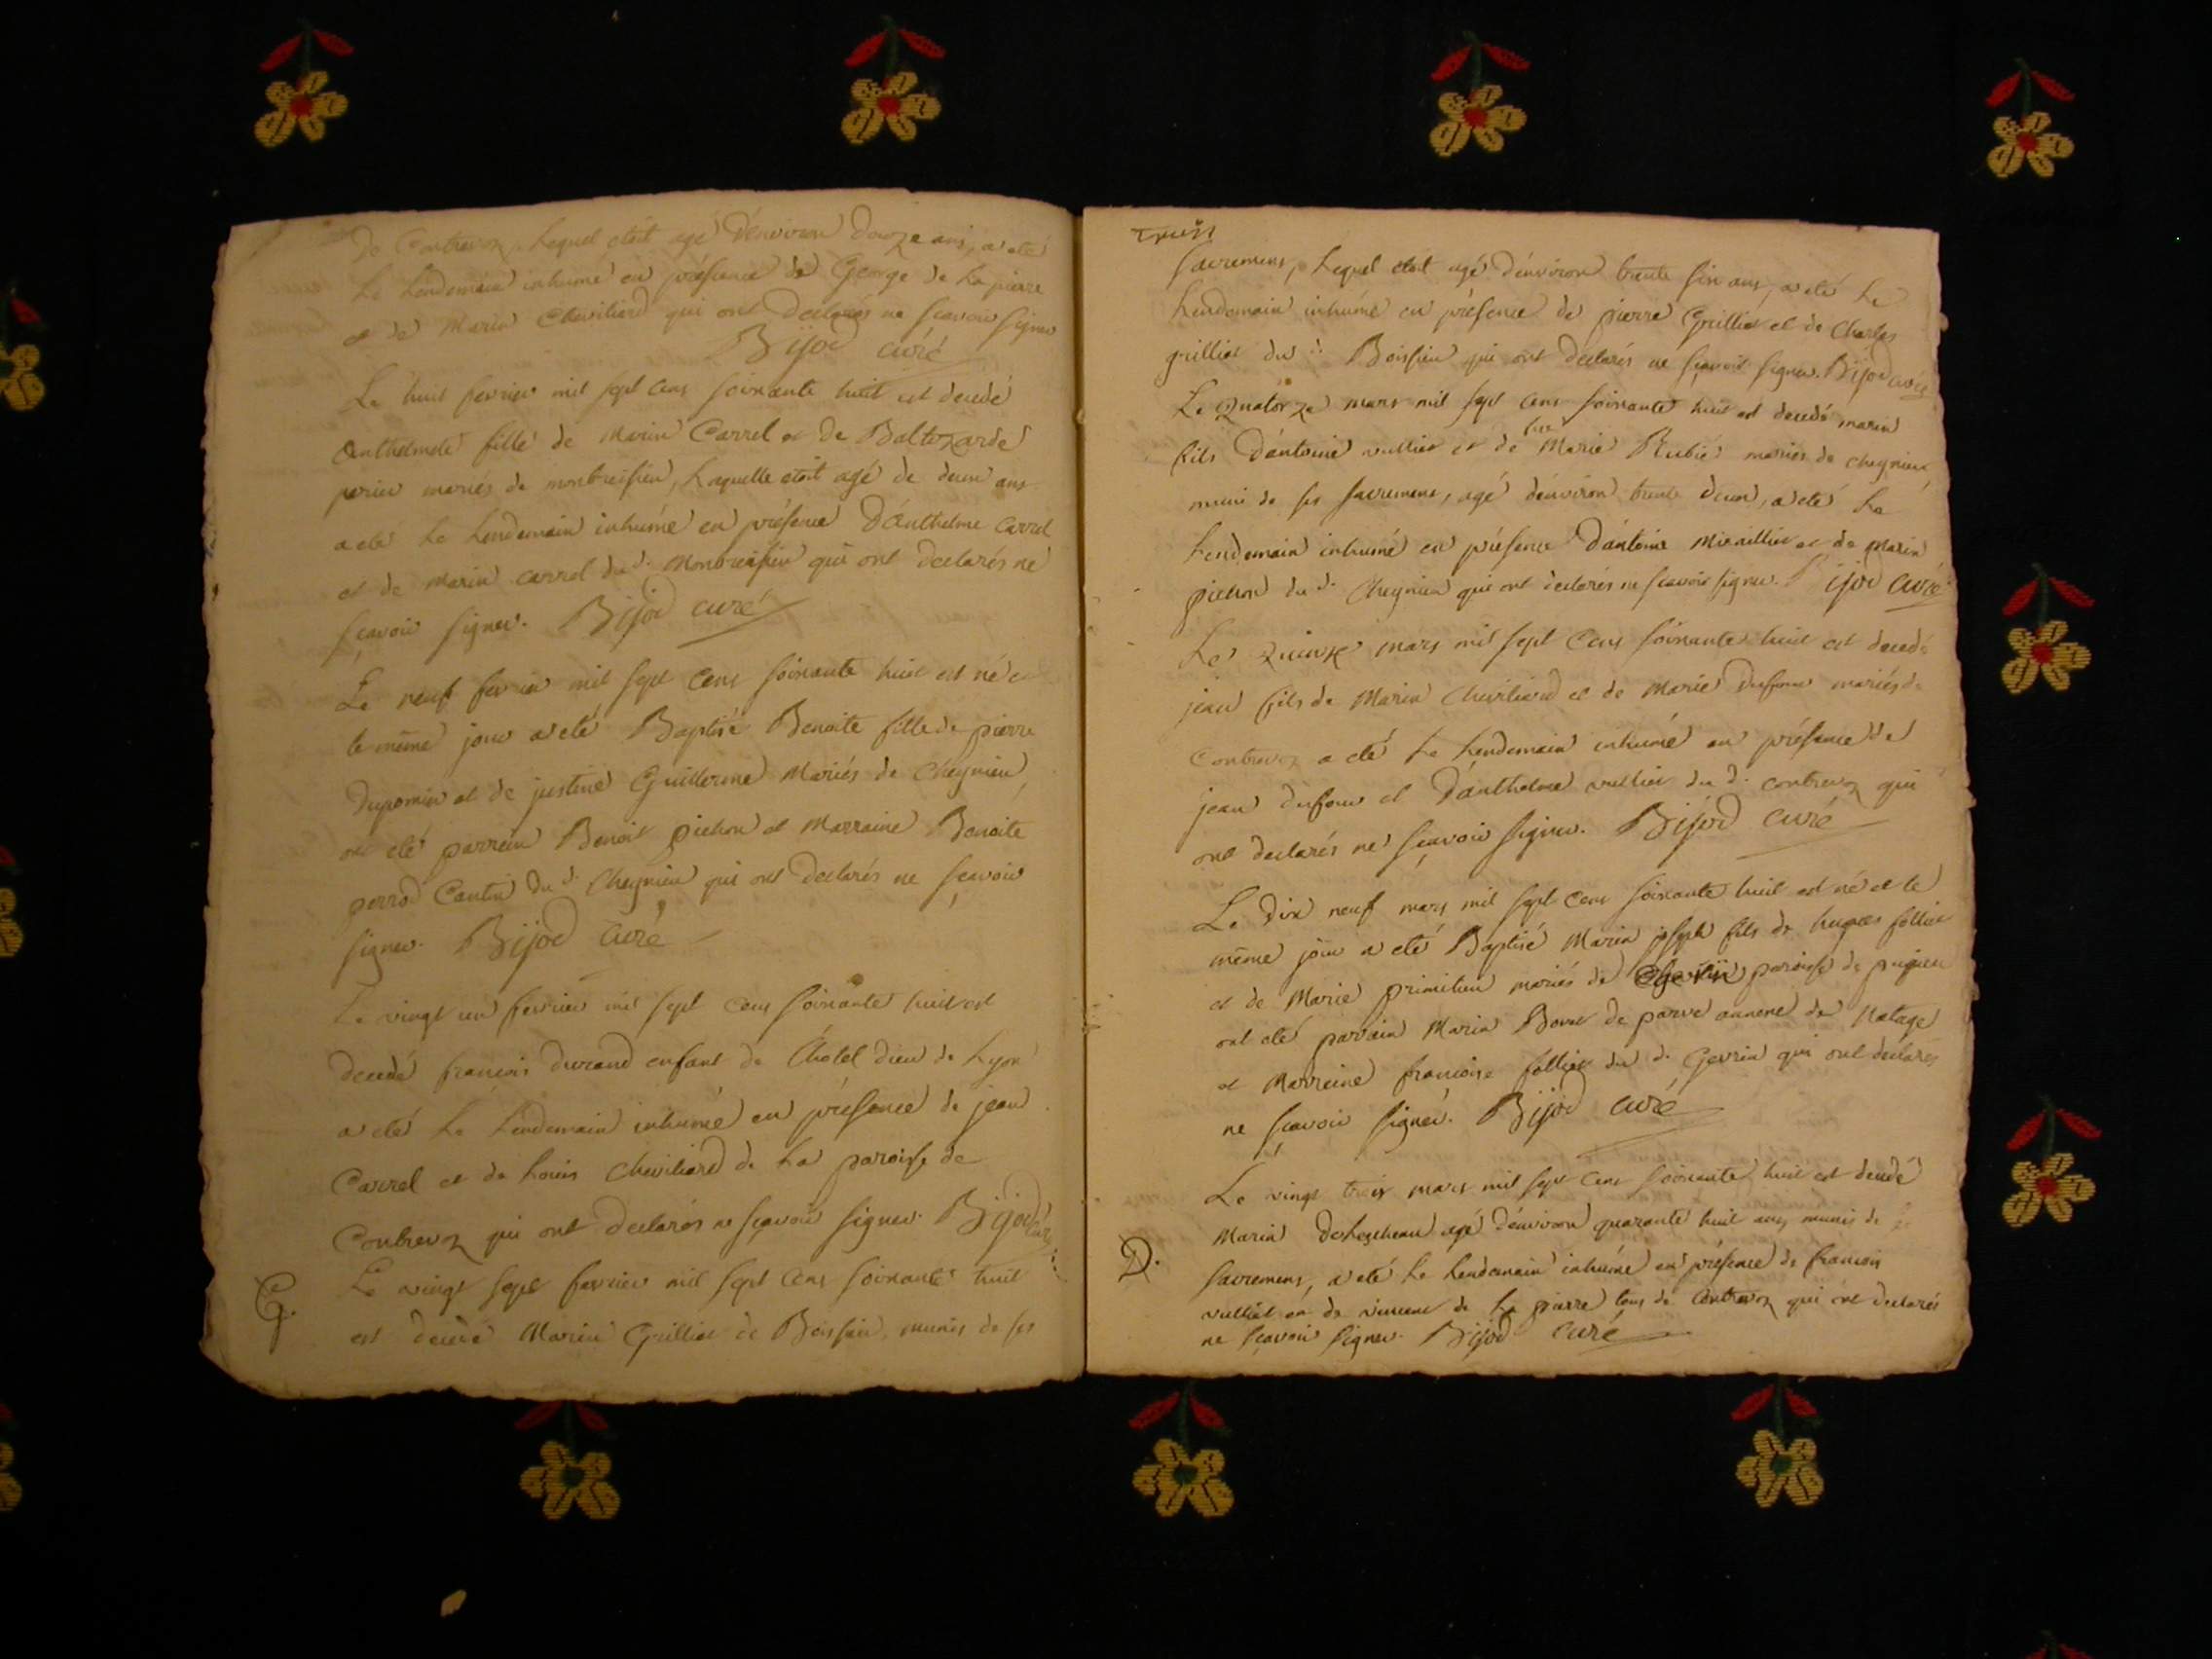 De Contrevoz, Lequel etoit agé d'environ douze ans, a eté
Le Lendemain inhumé en présence de George de La pierre
et de Marin Cheviliard qui ont declarés ne sçavoir signer
Bijod curé
Le huit fevrier mil sept cens soixante huit est decedé
Anthelmete fille de Marin Carrel et de Baltazarde
perier mariés de montbreisieu, Laquelle etoit agé de deux ans
a eté Le Lendemain inhumé en présence d'Anthelme Carrel
et de Marin carrel du d. Montbreisieu qui ont declarés ne
sçavoir signer. Bijod curé
Le neuf fevrier mil sept cens soixante huit est né e
le même jour a eté Baptisé Benoite fille de pierre
Dupomier et de justine Guillerme Mariés de Cheynieu,
ont eté parrain Benoit pichon et Marraine Benoite
perrod Cantin du d. Cheynieu qui ont declarés ne sçavoir
signer. Bijod curé
Le vingt un fevrier mil sept cens soixante huit est
decedé francois durand enfant de L'hotel dieu de Lyon
a eté Le Lendemain inhumé en présence de jean
Carrel et de Louis Cheviliard de La paroisse de
Contrevoz qui ont declarés ne sçavoir signer. Bijod curé
G.
Le vingt sept fevrier mil sept cens soixante huit
est decedé Marin Grilliet de Boissieu, munis de ses
trois
sacremens, Lequel etoit agé d'environ trente six ans, a eté Le
Lendemain inhumé en présence de pierre Grilliet et de Charles
grilliet du d. Boissieu qui ont declarés ne sçavoir signer. Bijod curé
Le Quatorze mars mil sept cens soixante huit est decedé marin
fils d'antoine vulliet et de feue Marie Rubié mariés de cheynieu,
muni de ses sacremens, agé d'environ trente deux, a eté Le
Lendemain inhumé en présence d'antoine Miraillier et de Marin
pichon du d. Cheynieu qui ont declarés ne sçavoir signer. Bijod curé
Le Quinze mars mil sept cens soixante huit est decedé
jean fils de Marin Cheviliard et de Marie dufour mariés de
Contrevoz a eté Le Lendemain inhumé en présence de
jean dufour et d'anthelme vulliet du d. contrevoz qui
ont declarés ne sçavoir signer. Bijod curé
Le dix neuf mars mil sept cens soixante huit est né et le
même jour a eté Baptisé Marin joseph fils de hugues folliet
et de Marie mariés de paroisse de pugieu
ont eté parrain Marin Bovet de parve annexe de Natage
et Marreine francoise folliet du d. Gevrin qui ont declarés
ne sçavoir signer. Bijod curé
Le vingt trois mars mil sept cens soixante huit est decedé
Marin agé d'environ quarante huit ans munis de
D.
sacremens, a eté Le Lendemain inhumé en présence de francois
vulliet et de vincent de La pierre tous de Contrevoz qui ont declarés
ne sçavoir signer. Bijod curé